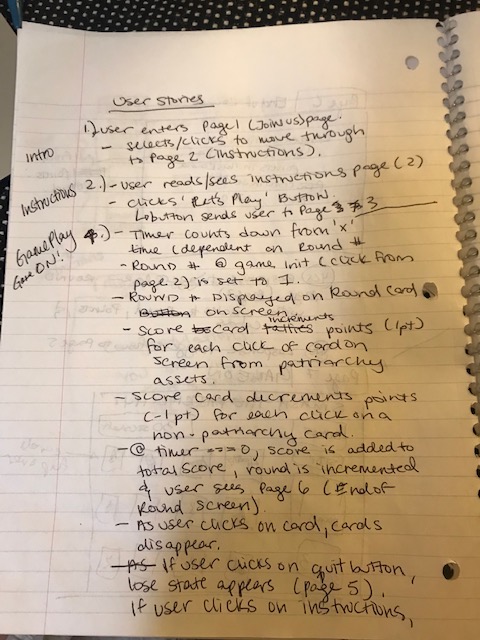 User Stories
1.) user enters page 1 (Join us) page.
Intro
- selects/clicks to move through
to page 2 (instructions).
Instructions 2.) - user reads/sees instructions page (2)
- clicks 'Let's Play' Button.
↳ button sends user to Page 3
Game Play
Game ON!
- Timer counts down from 'x'
time (dependent on Round #
- Round # @ game init (click from
page 2) is set to 1.
- Round # Displayed on Round Card
Button on screen
- Score card tallies increments points (1pt)
for each click of card on
screen from patriarchy
assets.
- Score card decrements points
(-1pt) for each click on a
non-patriarchy card.
- @ timer === 0, score is added to
total score, round is incremented
& user sees Page 6 (End of
Round Screen).
- As user clicks on card, cards
disappear.
- As If user clicks on quit button,
lose state appears (page 5).
If user clicks on instructions,